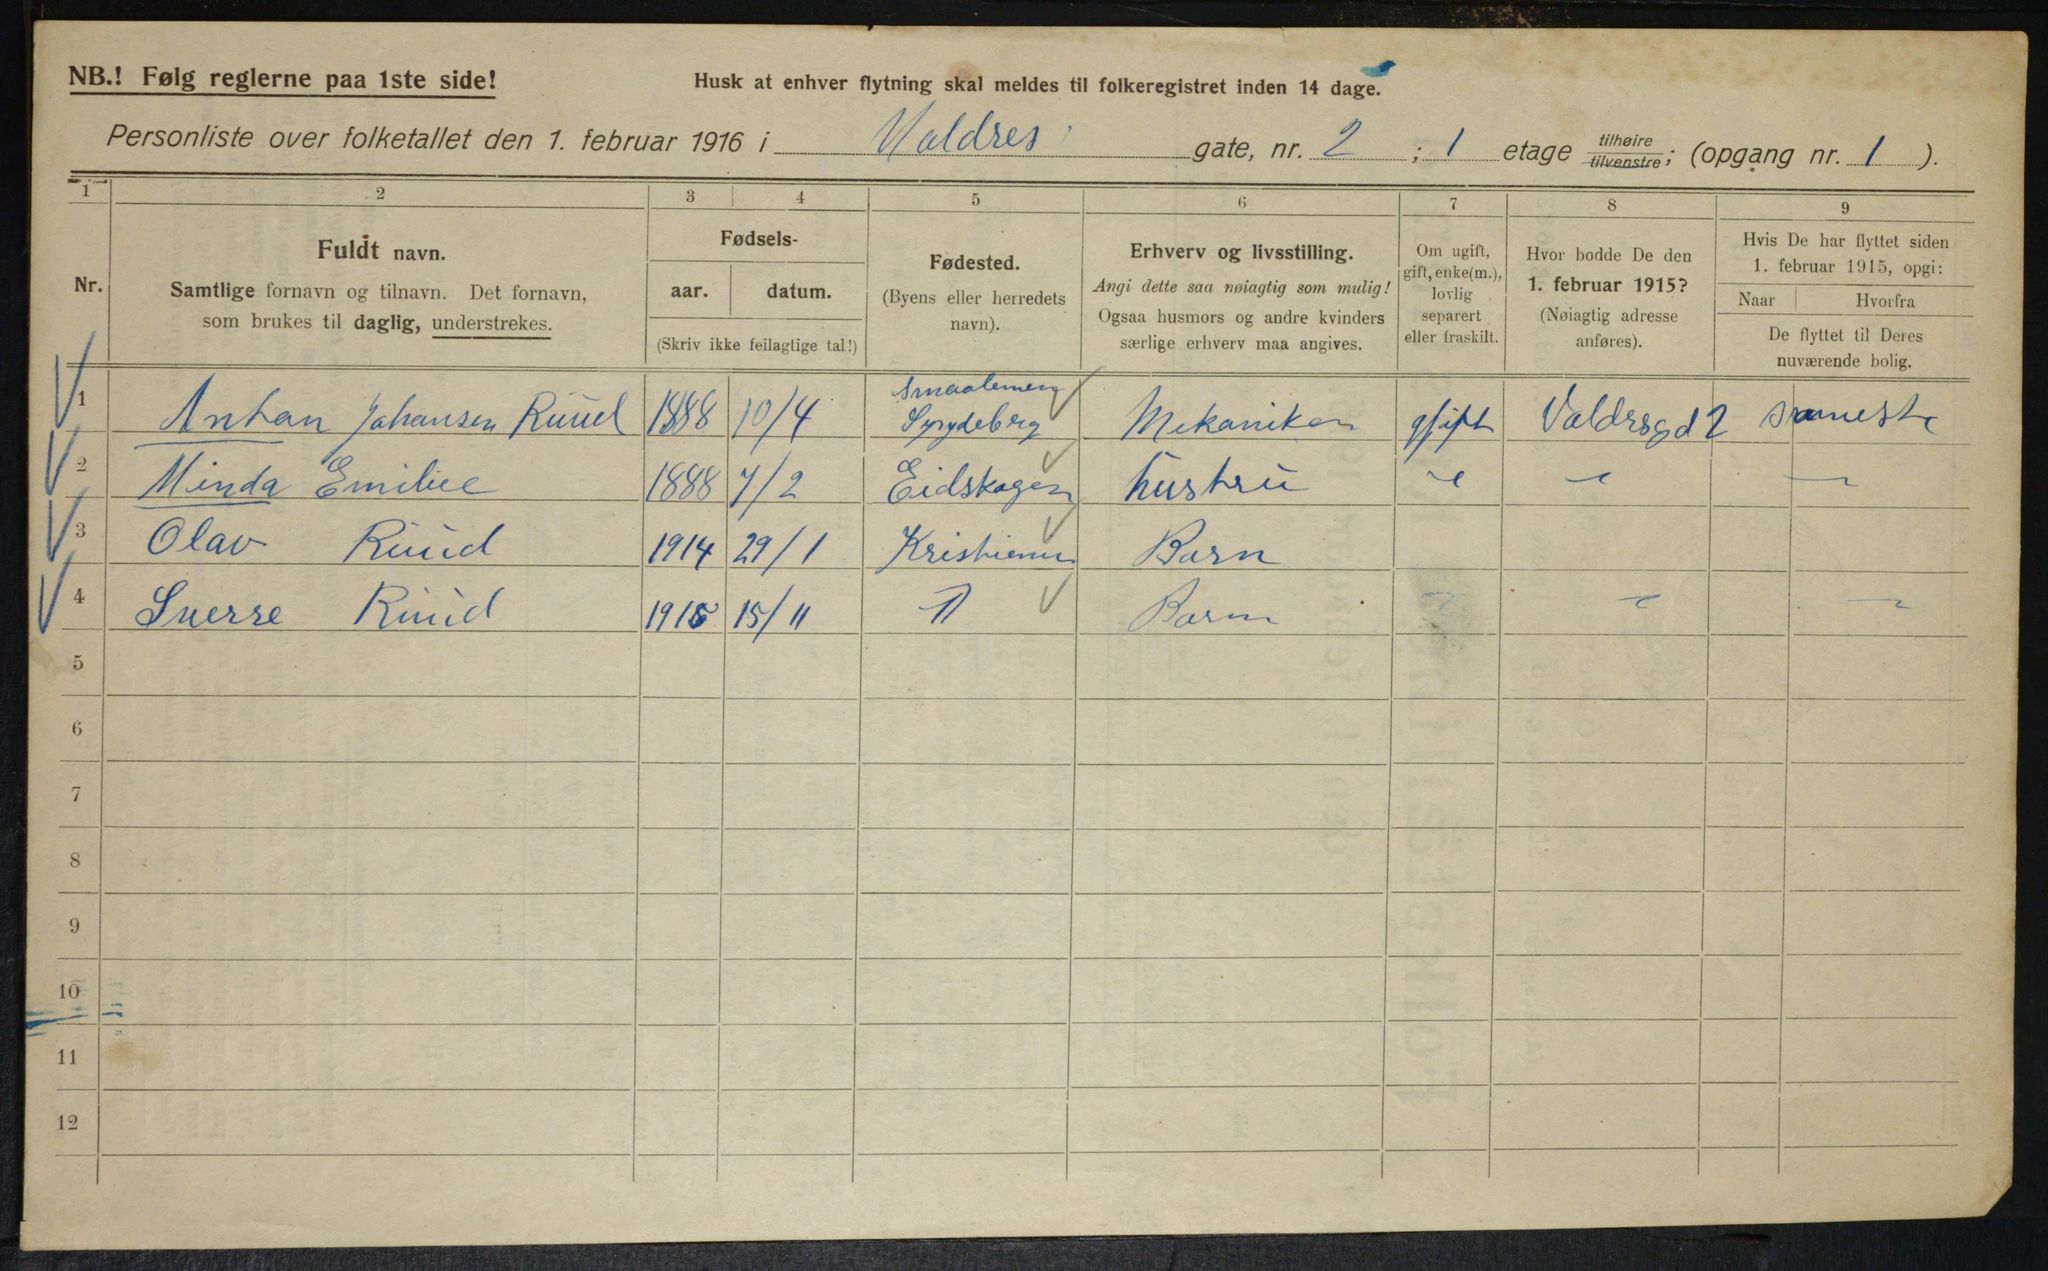 NB.! Følg reglerne paa 1ste side!
Husk at enhver flytning skal meldes til folkeregistret inden 14 dage.
Personliste over folketallet den 1. februar 1916 i Valdres gate, nr. 2 ; 1 etage tilhøire tilvenstre; (opgang nr. 1 ).
1 2 3 4 5 6 7 8 9
Nr.
Fuldt navn.
Samtlige fornavn og tilnavn. Det fornavn,
som brukes til daglig, understrekes.
Fødsels-
aar. datum.
(Skriv ikke feilagtige tal!)
Fødested.
(Byens eller herredets
navn).
Erhverv og livsstilling.
Angi dette saa nøiagtig som mulig!
Ogsaa husmors og andre kvinders
særlige erhverv maa angives.
Om ugift,
gift, enke(m.),
lovlig
separert
eller fraskilt.
Hvor bodde De den
1. februar 1915?
(Nøiagtig adresse
anføres).
Hvis De har flyttet siden
1. februar 1915, opgi:
Naar Hvorfra
De flyttet til Deres
nuværende bolig.
1 Anton Johansen Ruud 1888 10/4 Smaalenene Mekaniker gift Valdresgd 2
2 Minda Emilie 1888 7/2 Eidskogen hustru
3 Olav Ruud 1914 29/1 Kristiania Barn
4 Sverre Ruud 1915 15/11 Barn
5
6
7
8
9
10
11
12